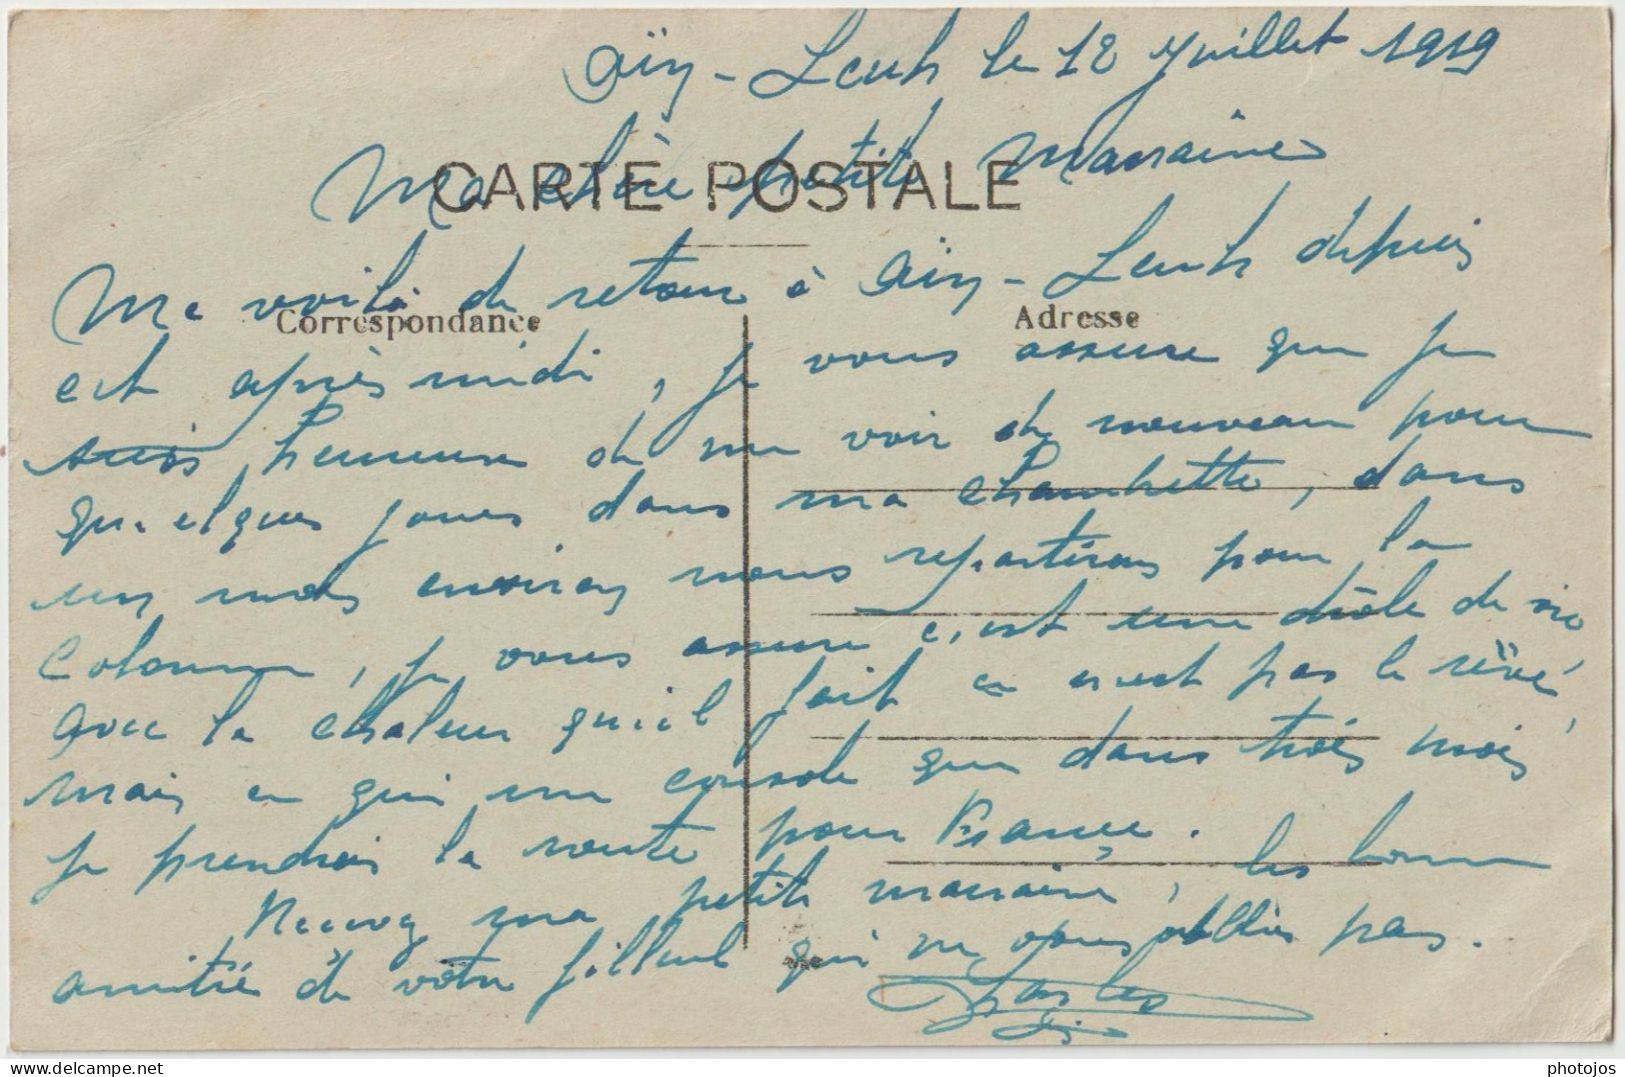 Aïn-Leuh le 12 Juillet 1919
CARTE POSTALE
Ma chère petite Marraine
Me voilà de retour à Aïn-Leuh depuis
Correspondance
Adresse
cet après midi, je vous assure que je
suis heureux de me voir de nouveau pour
quelques jours dans ma chambrette, dans
un mois environ nous repartirons pour la
Colonne, je vous assure c'est une drôle de vie
avec la chaleur qu'il fait ce n'est pas le rêve,
mais ce qui me console que dans trois mois
je prendrai la route pour France.
Recevez ma petite marraine, les bonne
amitié de votre filleul qui ne vous oublie pas.
photojos